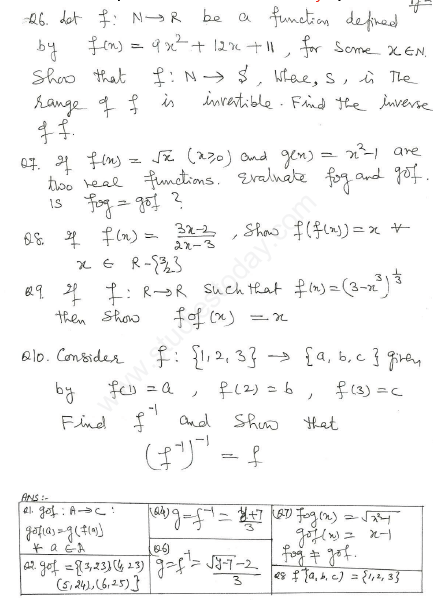 Q6. Let f: N→R be a function defined
by f(x) = 9x² + 12x + 11, for some x∈N.
Show that f: N→ S, Where, S, is The
range of f is invertible. Find the inverse
of f.
Q7. If f(x) = √x (x≥0) and g(x) = x²-1 are
two real functions. Evaluate fog and gof.
is fog = gof ?
Q8. If f(x) = (3x-2)/(2x-3), Show f(f(x)) = x ∀
x ∈ R-{3/2}
Q9. If f: R→R such that f(x) = (3-x³)^(1/3)
then show fof(x) = x
Q10. Consider f: {1, 2, 3} → {a, b, c} given
by f(1) = a , f(2) = b , f(3) = c
Find f⁻¹ and Show that
(f⁻¹)⁻¹ = f
ANS :-
Q1. gof: A→C :
gof(a) = g(f(a))
∀ a ∈ A
Q2. gof = {(3,23)(4,23)
(5,24),(6,25)}
(Q4) g = f⁻¹ = (y+7)/3
(Q6)
g = f⁻¹ = (√(y-7) - 2)/3
(Q7) fog(x) = √(x²-1)
gof(x) = x-1
fog ≠ gof.
Q8 f⁻¹{a, b, c) = {1,2,3}
www.studiestoday.com